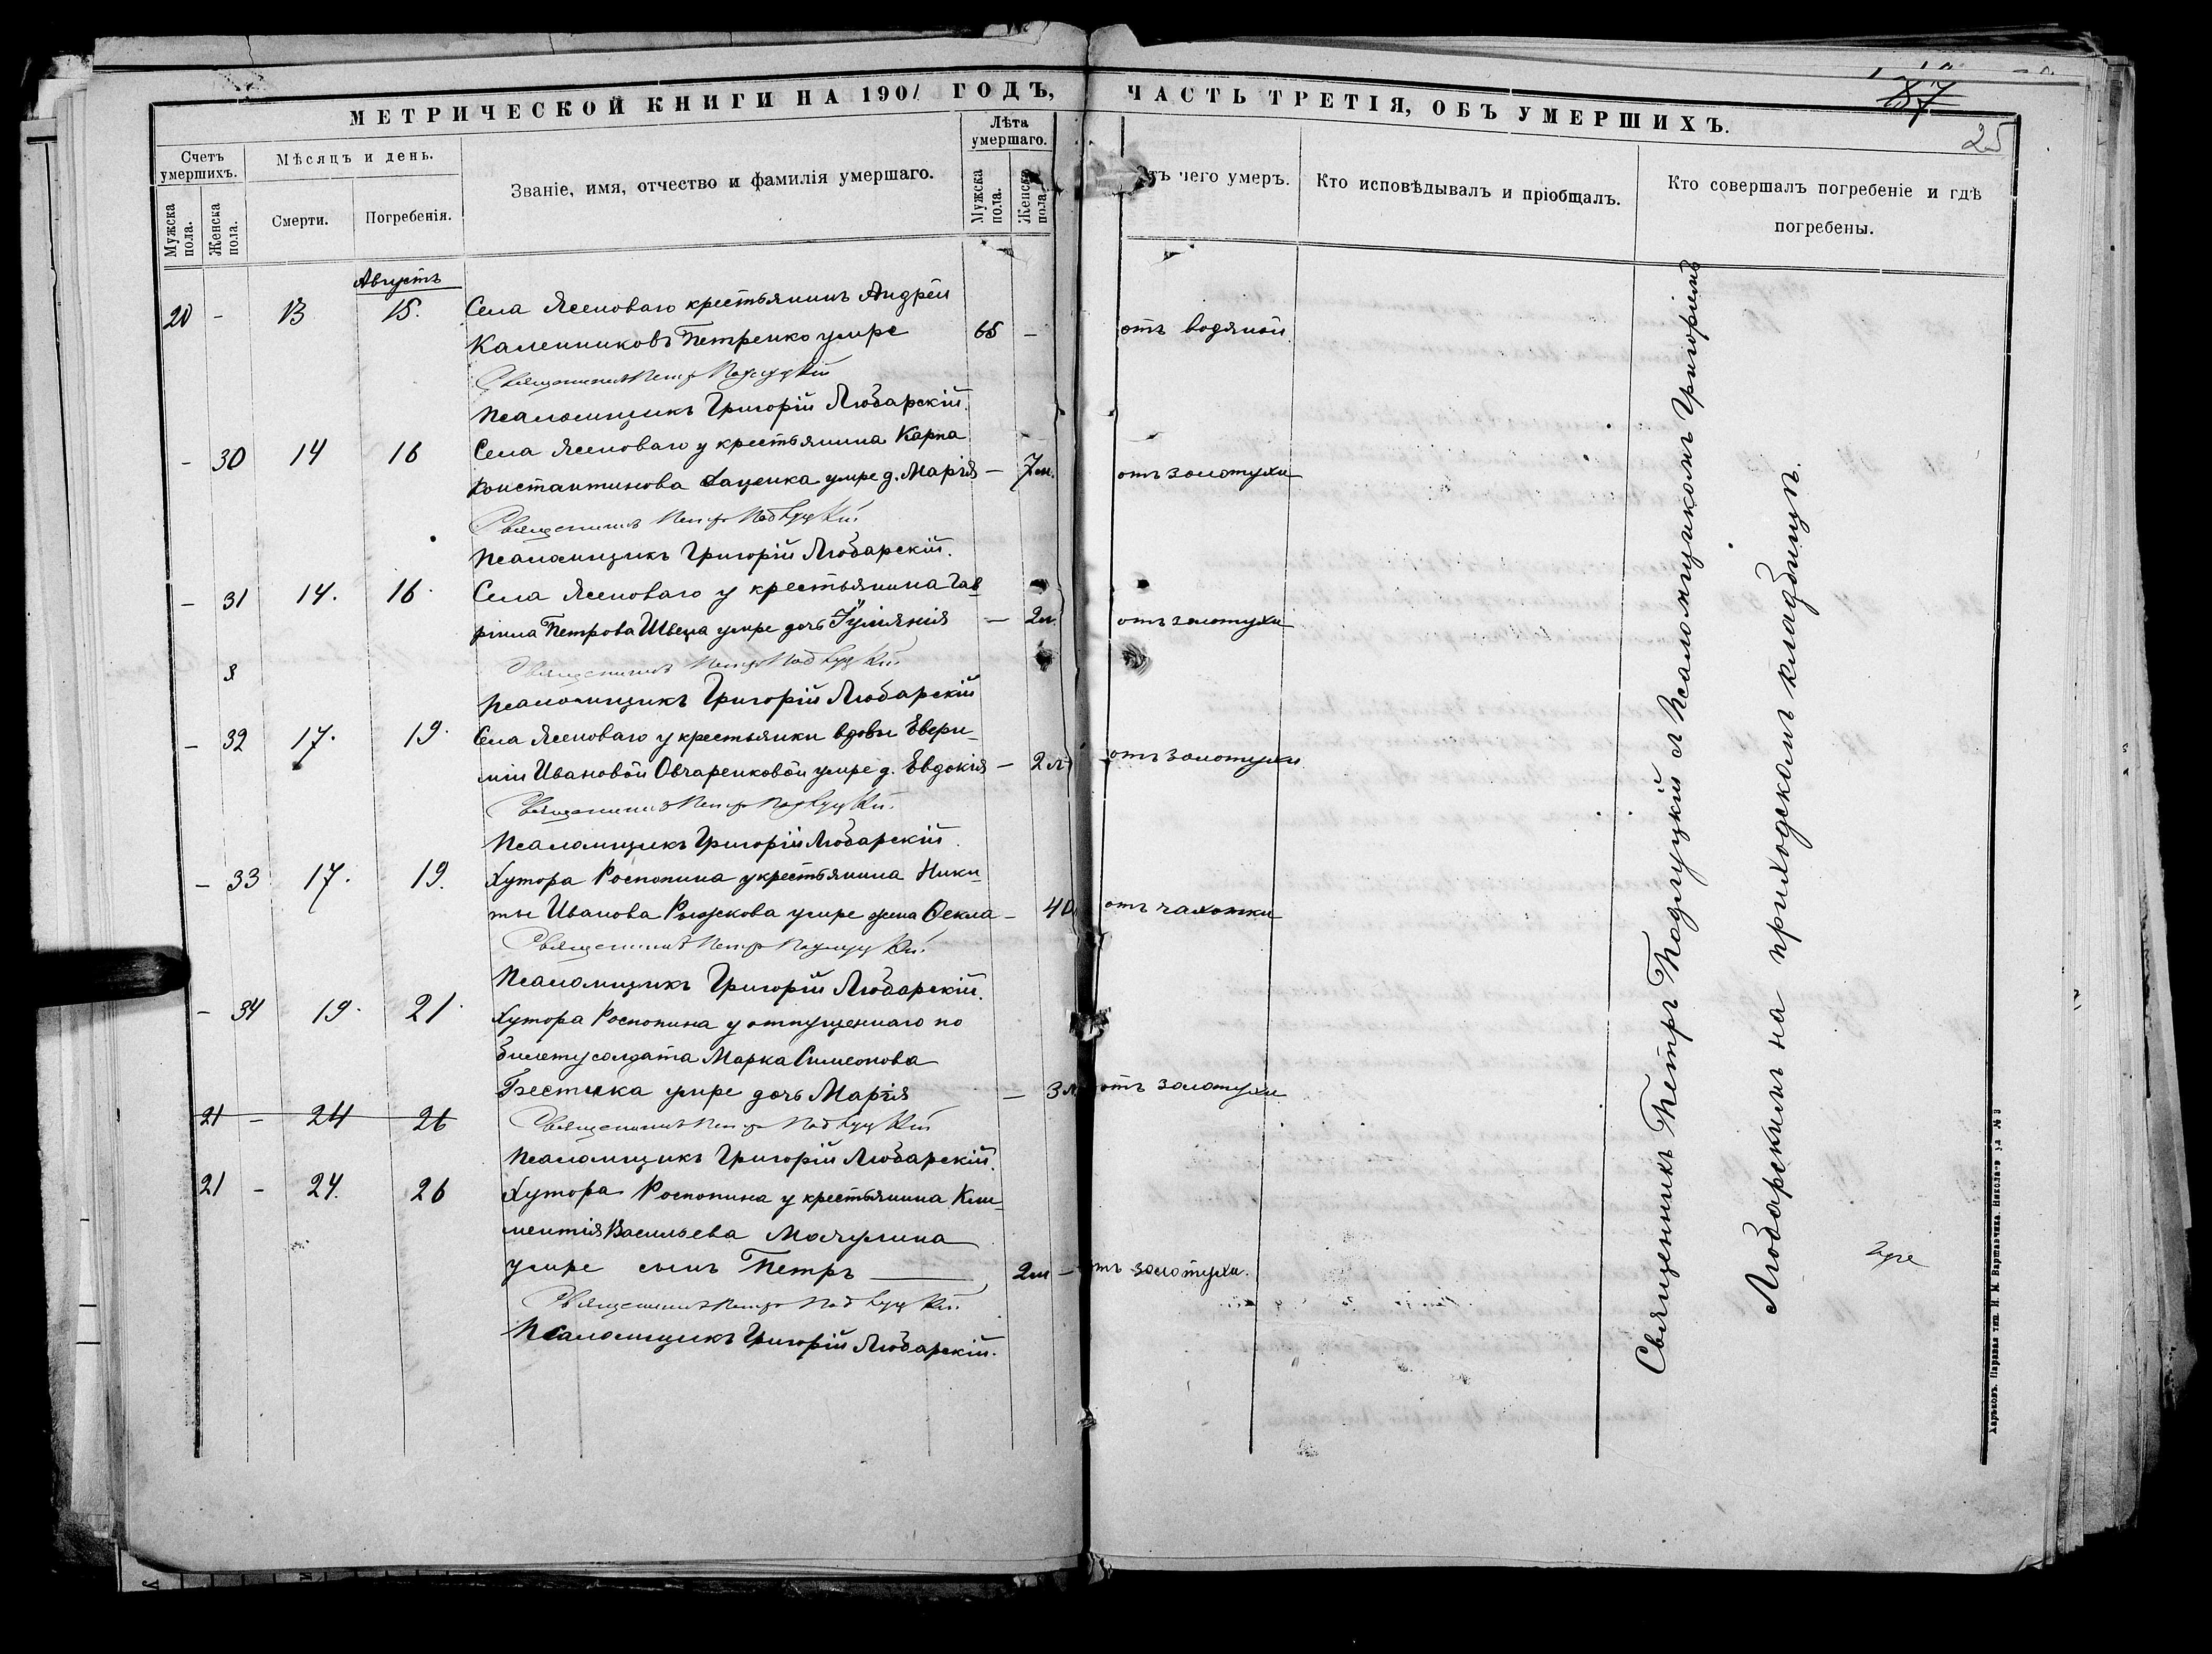 МЕТРИЧЕСКОЙ КНИГИ НА 1901 ГОДЪ,
ЧАСТЬ ТРЕТІЯ, ОБЪ УМЕРШИХЪ.
87
25
Счетъ умершихъ.
Мѣсяцъ и день.
Званіе, имя, отчество и фамилія умершаго.
Лѣта умершаго.
Мужска пола.
Женска пола.
Смерти.
Погребенія.
Мужска пола.
Женска пола.
чего умеръ.
Кто исповѣдывалъ и пріобщалъ.
Кто совершалъ погребеніе и гдѣ
погребены.
Августъ
20 - 13 15. Села Ясеноваго крестьянинъ Андрей
Каленниковъ Петренко умре 65 - отъ водяной
Священникъ Петръ Подлуцкій
Псаломщикъ Григорій Любарскій.
- 30 14 16 Села Ясеноваго у крестьянина Карпа
Константинова Даценка умре д. Марія - 7 м. отъ золотухи
Священникъ Петръ Подлуцкій
Псаломщикъ Григорій Любарскій.
- 31 14. 16. Села Ясеноваго у крестьянина Гав-
ріила Петрова Швеца умре дочь Іуліянія - 2 м. отъ золотухи
Священникъ Петръ Подлуцкій
Псаломщикъ Григорій Любарскій
- 32 17. 19. Села Ясеноваго у крестьянки вдовы Евфи-
міи Ивановой Овчаренковой умре д. Евдокія - 2 л отъ золотухи
Священникъ Петръ Подлуцкій.
Псаломщикъ Григорій Любарскій.
- 33 17. 19. Хутора Роспопина у крестьянина Ники-
ты Иванова Рыжкова умре жена Ѳекла - 40 отъ чахотки
Священникъ Петръ Подлуцкій.
Псаломщикъ Григорій Любарскій.
- 34 19. 21. Хутора Роспопина у отпущеннаго по
билету солдата Марка Симеонова
умре дочь Марія - 3 отъ золотухи
21 - 24 26 Священникъ Петръ Подлуцкій
Псаломщикъ Григорій Любарскій.
21 - 24. 26 Хутора Роспопина у крестьянина Кли-
ментія Васильева Мачулина
умре сынъ Петръ 2 м - отъ золотухи.
Священникъ Петръ Подлуцкій.
Псаломщикъ Григорій Любарскій.
Священникъ Петръ Подлуцкій съ Псаломщикомъ Григоріемъ
Любарскимъ на приходскомъ кладбищѣ.
Харьковъ. Паровая тип. И. М. Варшавчика. Николаев ул №